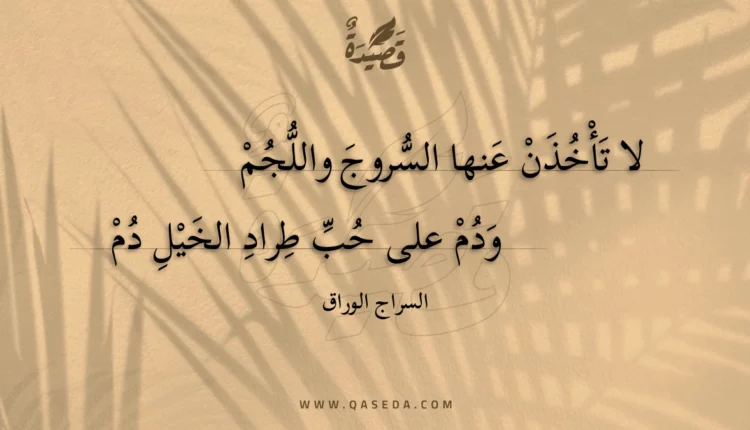 قَصِيْدَةٌ
لا تَأْخُذَنْ عَنها السُّروجَ واللُّجُمْ
وَدُمْ على حُبِّ طِرادِ الخَيْلِ دُمْ
السراج الوراق
WWW.QASEDA.COM